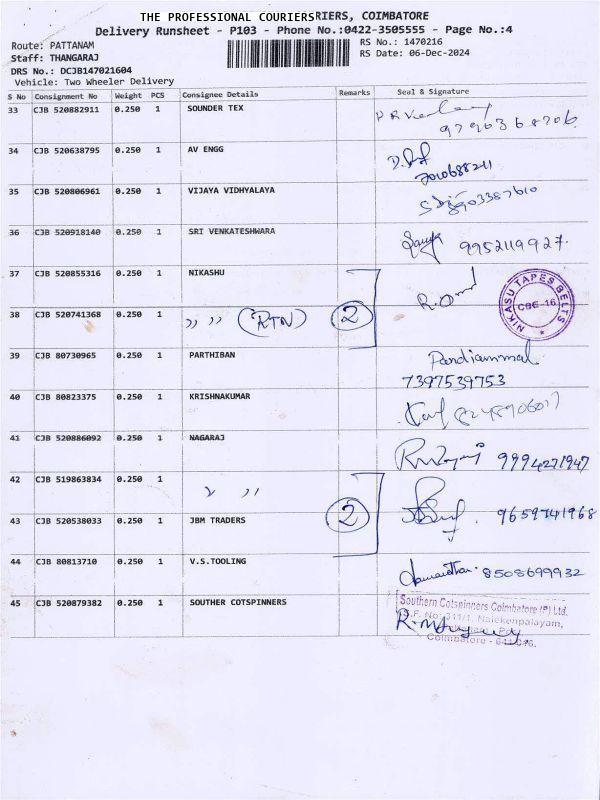 THE PROFESSIONAL COURIERSRIERS, COIMBATORE
Delivery Runsheet - P103 - Phone No.:0422-3505555 - Page No.:4
Route: PATTANAM
Staff: THANGARAJ
DRS No.: DCJB147021604
Vehicle: Two Wheeler Delivery
RS No.: 1470216
RS Date: 06-Dec-2024
S No Consignment No Weight PCS Consignee Details Remarks Seal & Signature
33 CJB 520882911 0.250 1 SOUNDER TEX
34 CJB 520638795 0.250 1 AV ENGG
35 CJB 520806961 0.250 1 VIJAYA VIDHYALAYA
36 CJB 520918140 0.250 1 SRI VENKATESHWARA 9952119927.
37 CJB 520855316 0.250 1 NIKASHU
NIKASU TAPES BELTS
CBE-16
38 CJB 520741368 0.250 1 " " (RTN) 2
39 CJB 80730965 0.250 1 PARTHIBAN Pandiammal
7397539753
40 CJB 80823375 0.250 1 KRISHNAKUMAR
41 CJB 520886092 0.250 1 NAGARAJ 9994271947
42 CJB 519863834 0.250 1 " "
43 CJB 520538033 0.250 1 JBM TRADERS 2 9659741968
44 CJB 80813710 0.250 1 V.S.TOOLING 8508699932
45 CJB 520879382 0.250 1 SOUTHER COTSPINNERS
Southern Cotspinners Coimbatore (P) Ltd.
S.F. No: 311/1, Naickenpalayam,
Coimbatore -